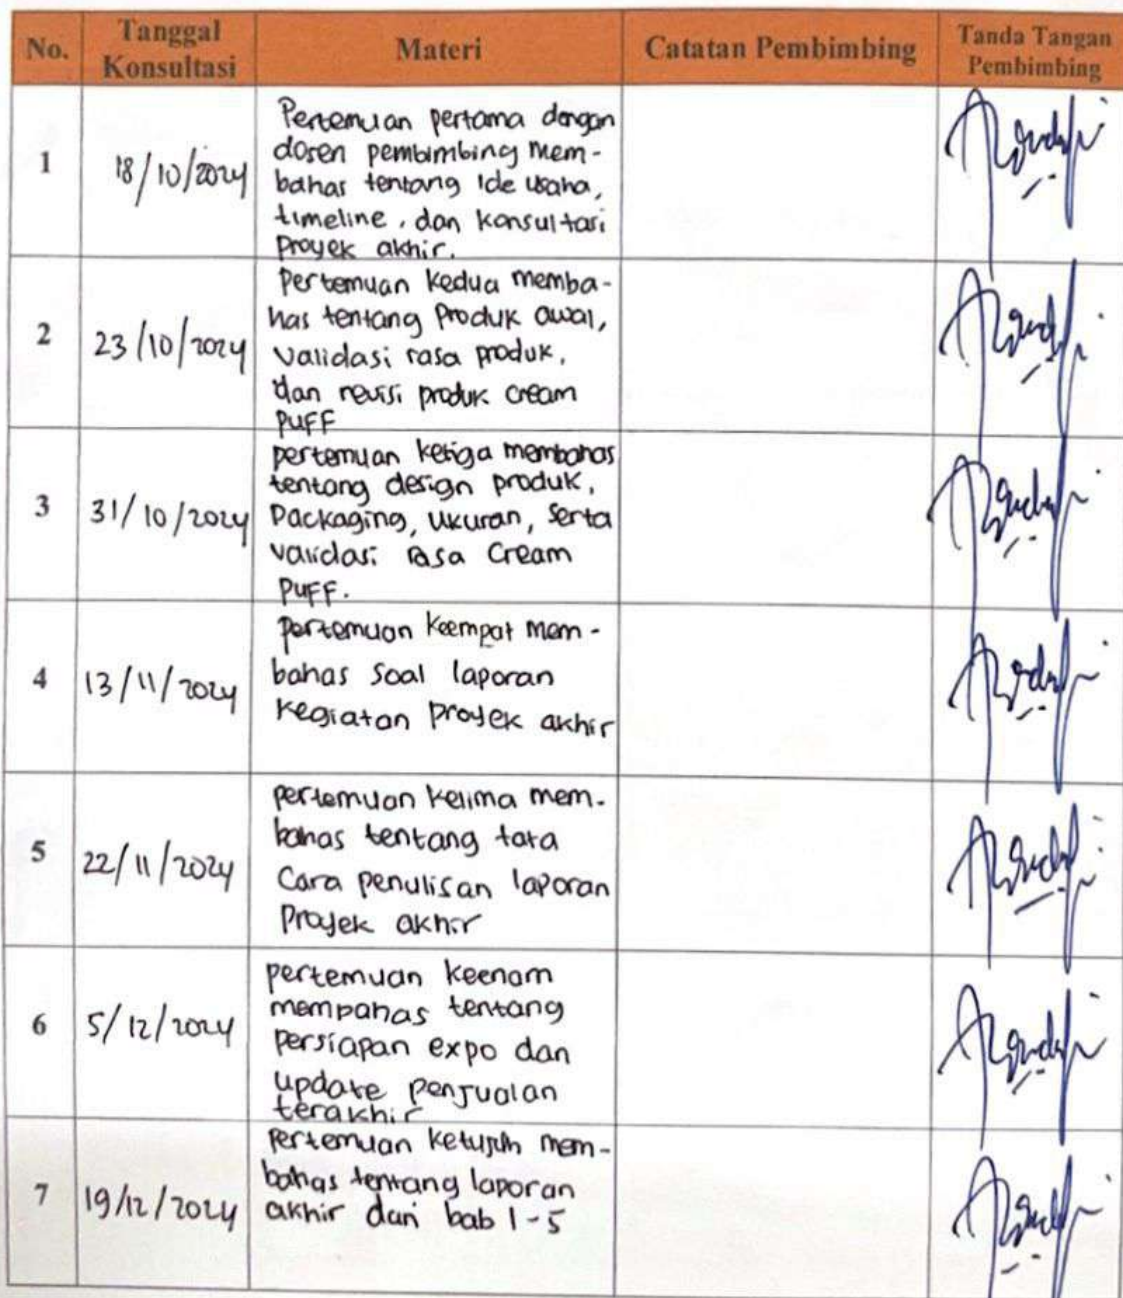 No.
Tanggal
Konsultasi
Materi
Catatan Pembimbing
Tanda Tangan
Pembimbing
1
18/10/2024
Pertemuan pertama dengan
dosen pembimbing mem-
bahas tentang ide usaha,
timeline, dan konsultasi
proyek akhir.
2
23/10/2024
Pertemuan kedua memba-
has tentang produk awal,
validasi rasa produk,
dan revisi produk cream
puff
3
31/10/2024
pertemuan ketiga membahas
tentang design produk,
Packaging, ukuran, serta
validasi rasa Cream
Puff.
4
13/11/2024
pertemuan keempat mem-
bahas soal laporan
kegiatan proyek akhir
5
22/11/2024
pertemuan kelima mem-
bahas tentang tata
Cara penulisan laporan
Proyek akhir
6
5/12/2024
pertemuan keenam
membahas tentang
persiapan expo dan
update penjualan
terakhir
7
19/12/2024
Pertemuan ketujuh mem-
bahas tentang laporan
akhir dari bab 1-5